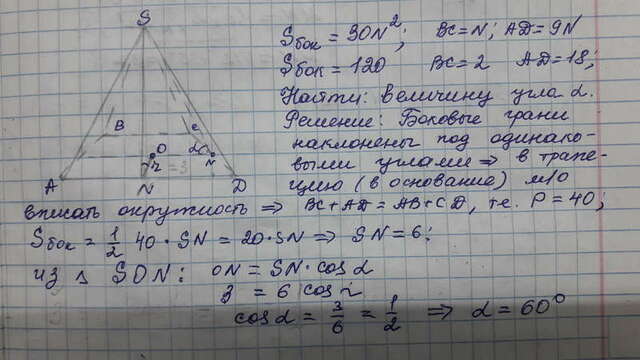 A
B
S
N
O
r = 3
C
D
Sбок = 30N²; BC = N; AD = 9N
Sбок = 120, BC = 2 AD = 18;
Найти: величину угла α.
Решение: Боковые грани
наклонены под одинако-
выми углами ⇒ в трапе-
цию (в основание) м/о
вписать окружность ⇒ BC + AD = AB + CD, т.е. P = 40;
Sбок = 1/2 40 · SN = 20 · SN ⇒ SN = 6;
из Δ SON: ON = SN · cos α
3 = 6 cos α
cos α = 3/6 = 1/2 ⇒ α = 60°